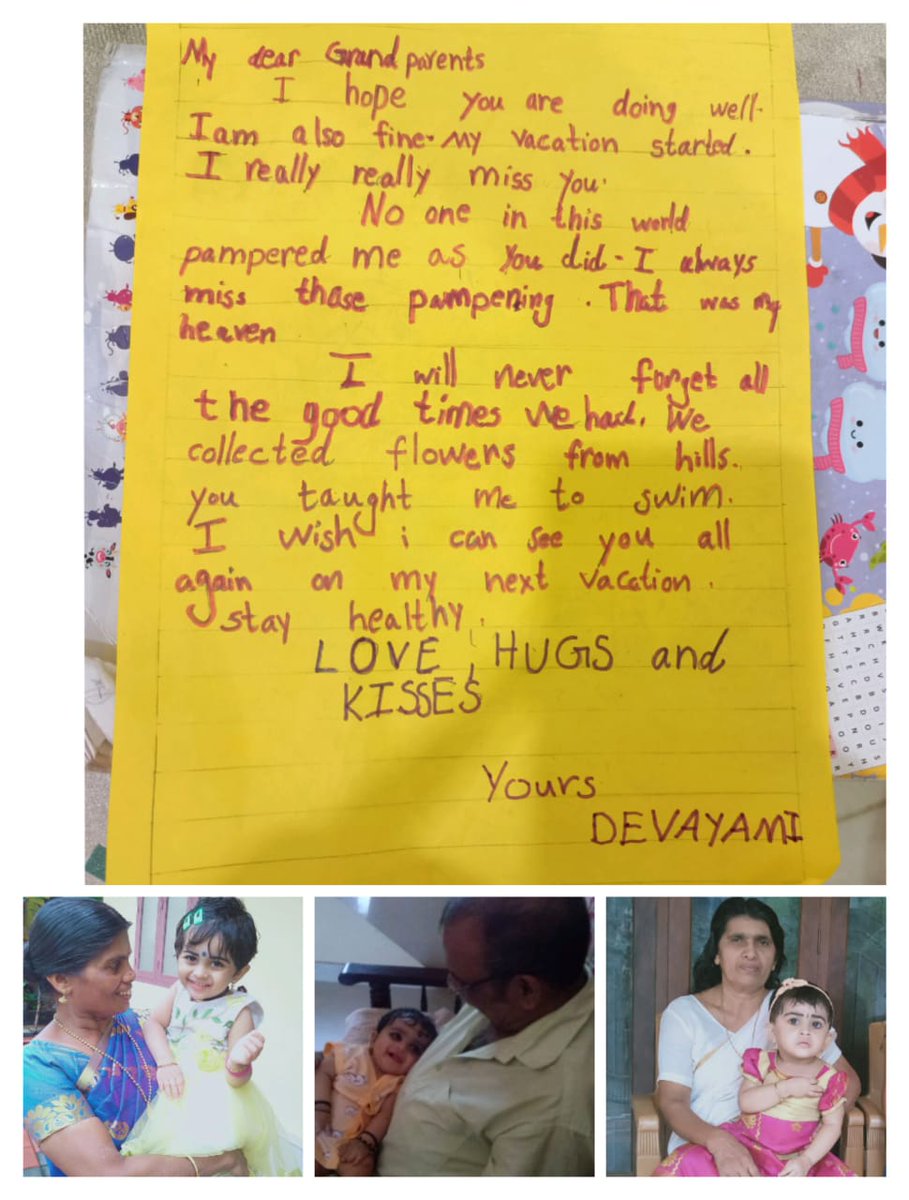 My dear Grandparents
I hope you are doing well.
I am also fine. My vacation started.
I really really miss you.
No one in this world
pampered me as you did. I always
miss those pampening. That was my
heaven
I will never forget all
the good times we had. We
collected flowers from hills.
you taught me to swim.
I wish i can see you all
again on my next vacation.
stay healthy.
LOVE, HUGS and
KISSES
Yours
DEVAYAMI